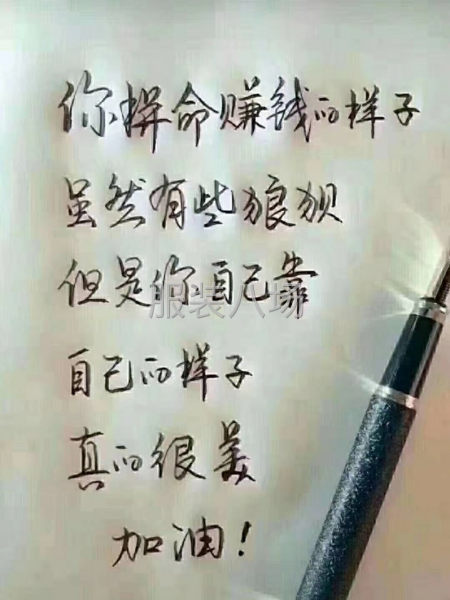 你拼命赚钱的样子
虽然有些狼狈
但是你自己靠
服装八场
自己的样子
真的很美
加油！